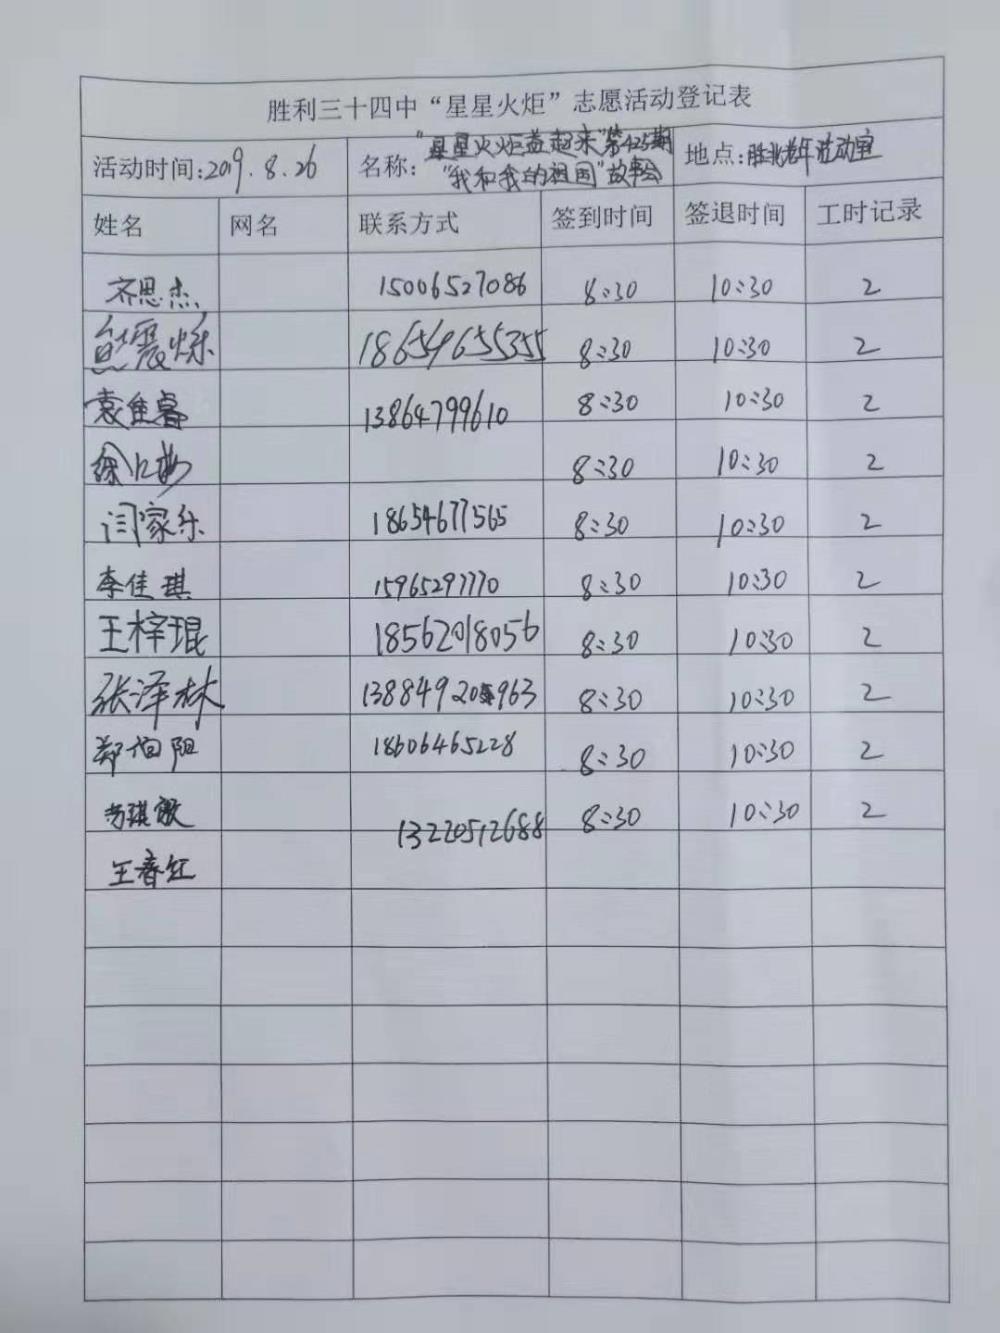 胜利三十四中“星星火炬”志愿活动登记表
活动时间:2019.8.26 名称:“星星火炬益起来”第425期“我和我的祖国”故事会 地点:胜北老年活动室
姓名 网名 联系方式 签到时间 签退时间 工时记录
齐思杰 15006527086 8:30 10:30 2
熊震烁 18654655355 8:30 10:30 2
袁佳睿 13864799610 8:30 10:30 2
徐 8:30 10:30 2
闫家乐 18654677565 8:30 10:30 2
李佳琪 15965297770 8:30 10:30 2
王梓琨 18562018056 8:30 10:30 2
张泽林 13884920963 8:30 10:30 2
郑伯阳 18606465228 8:30 10:30 2
琪敏 13220512688 8:30 10:30 2
王春红